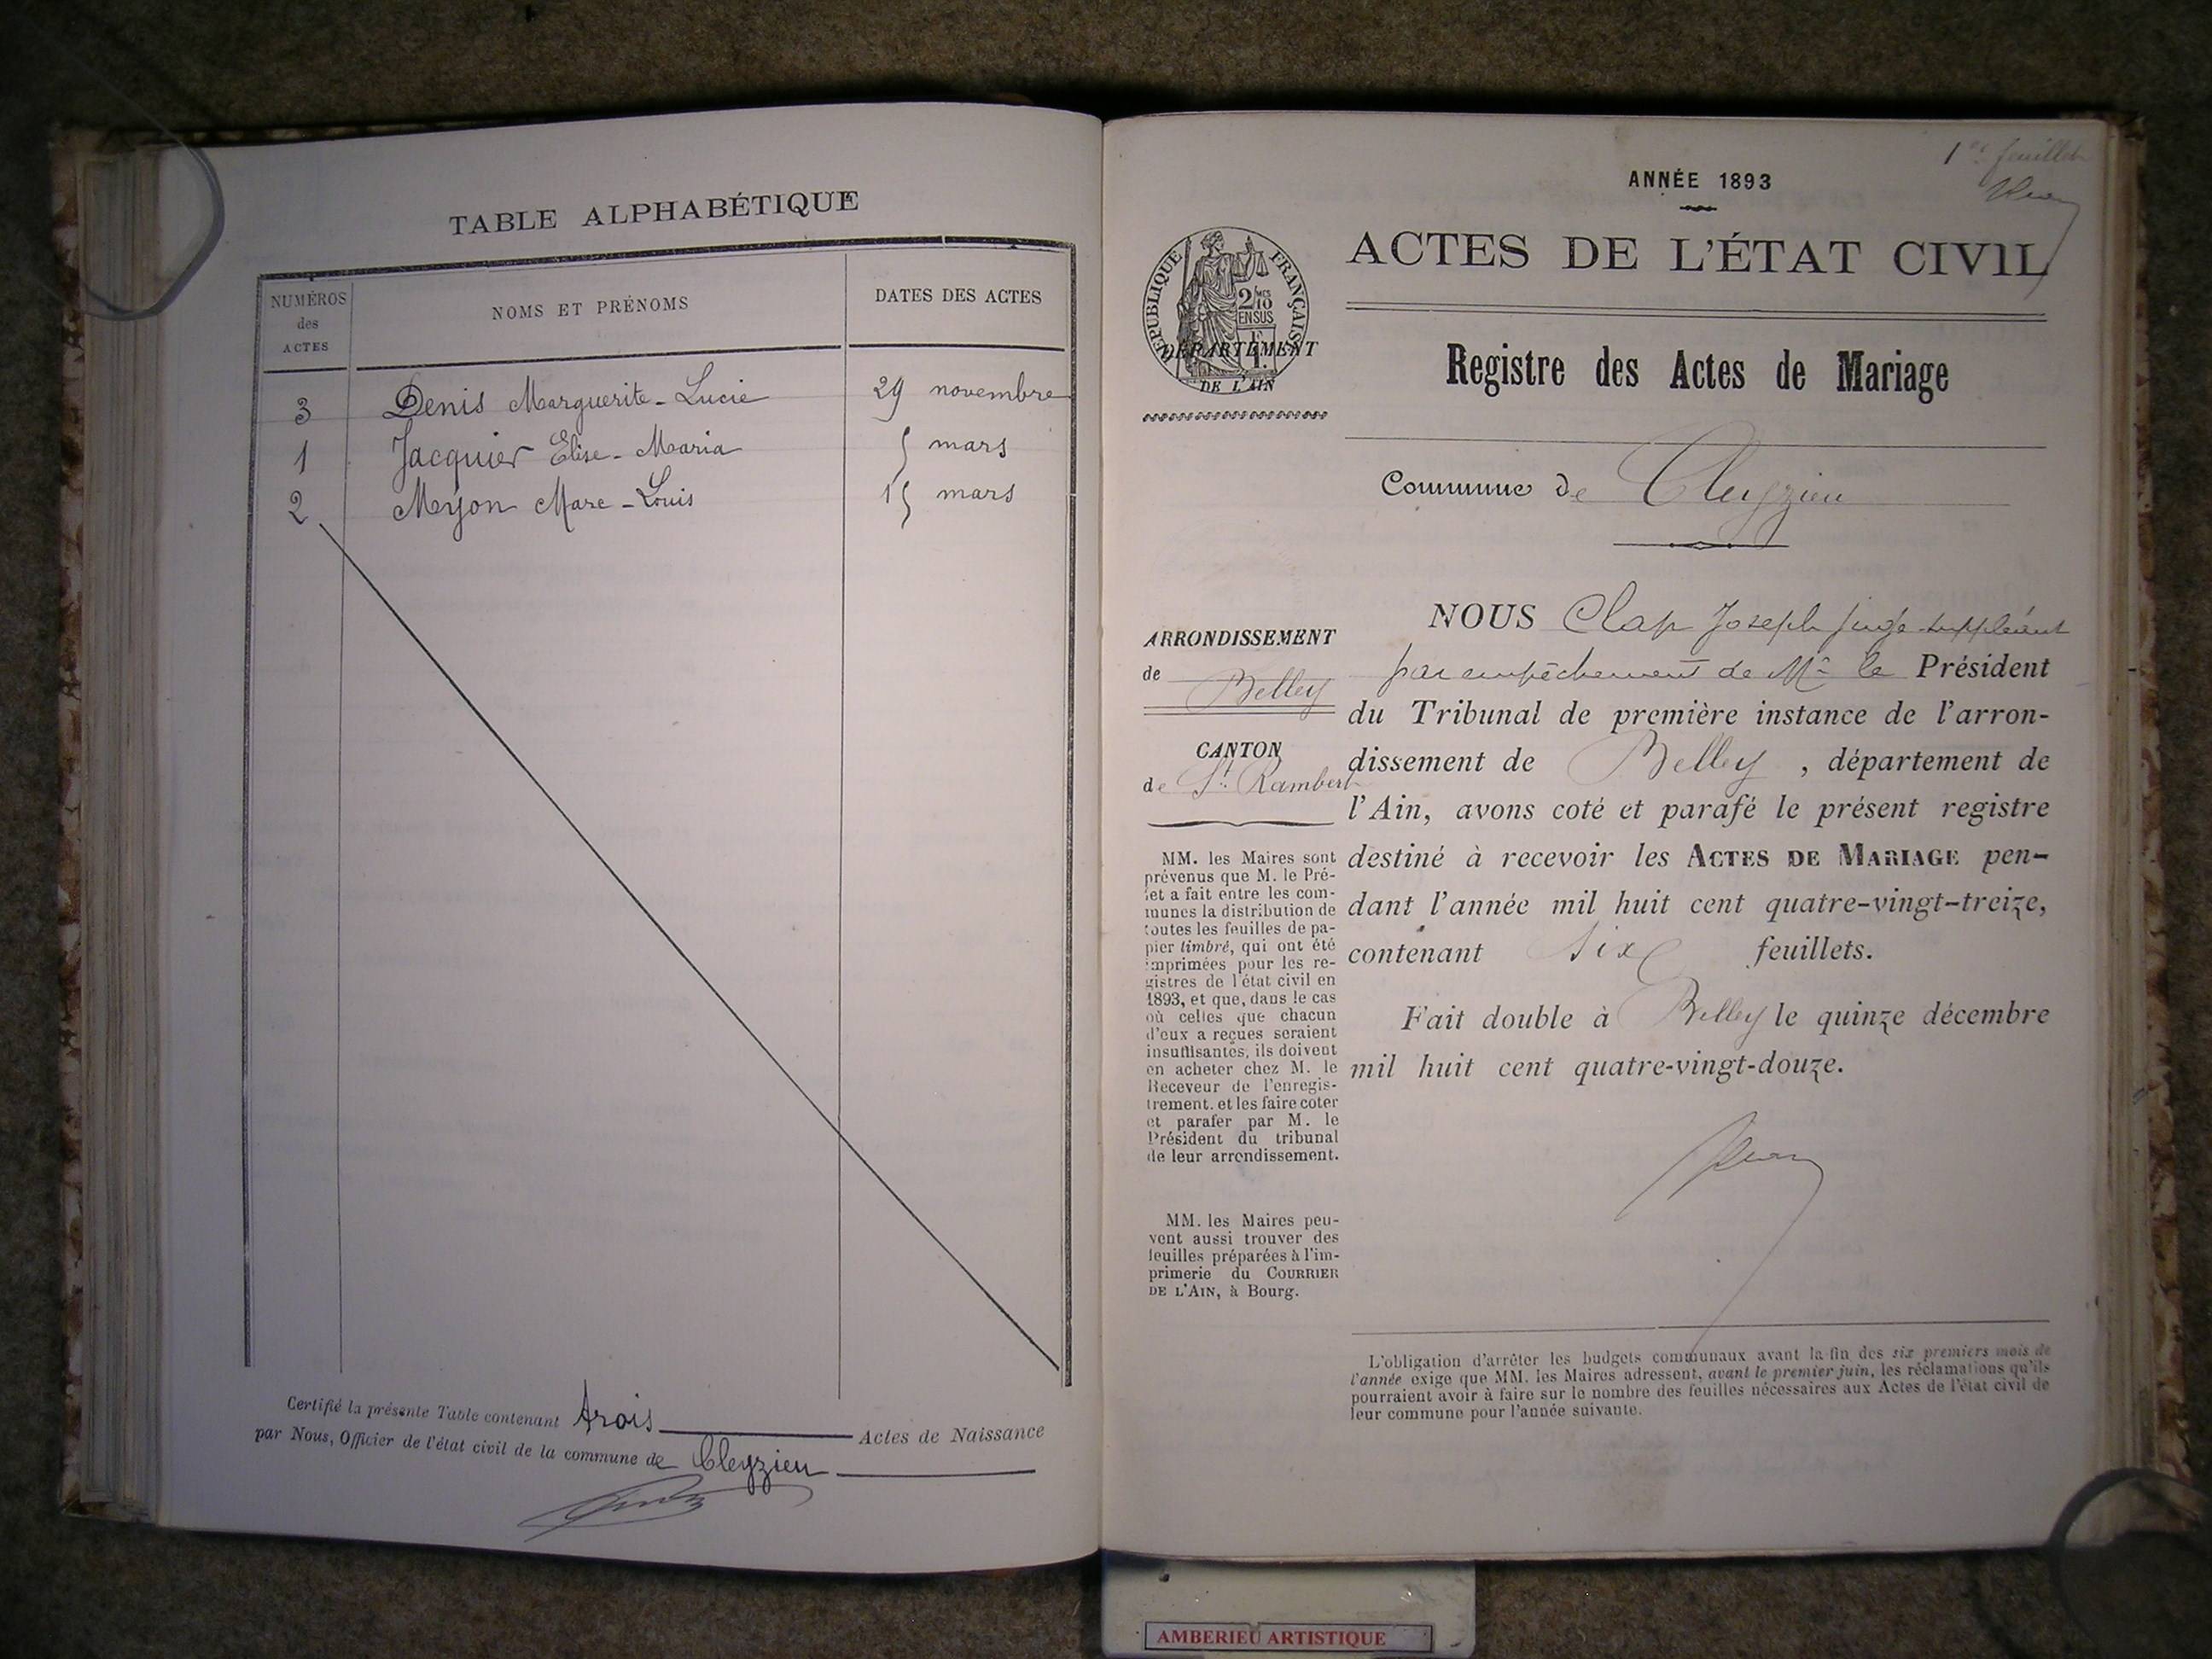 TABLE ALPHABÉTIQUE
NUMÉROS
des
ACTES
NOMS ET PRÉNOMS
DATES DES ACTES
3 Denis Marguerite-Lucie 29 novembre
1 Jacquier Elise-Maria 5 mars
2 Meyson Marc-Louis 15 mars
Certifié la présente Table contenant trois Actes de Naissance
par Nous, Officier de l'état civil de la commune de Cleyzieu
1er feuillet
ANNÉE 1893
ACTES DE L'ÉTAT CIVIL
RÉPUBLIQUE FRANÇAISE
2/10
EN SUS
DÉPARTEMENT
DE L'AIN
Registre des Actes de Mariage
Commune de Cleyzieu
ARRONDISSEMENT
de Belley
CANTON
de St Rambert
MM. les Maires sont
prévenus que M. le Pré-
fet a fait entre les com-
munes la distribution de
toutes les feuilles de pa-
pier timbré, qui ont été
imprimées pour les re-
gistres de l'état civil en
1893, et que, dans le cas
où celles que chacun
d'eux a reçues seraient
insuffisantes, ils doivent
en acheter chez M. le
Receveur de l'enregis-
trement. et les faire coter
et parafer par M. le
Président du tribunal
de leur arrondissement.
MM. les Maires peu-
vent aussi trouver des
feuilles préparées à l'im-
primerie du COURRIER
DE L'AIN, à Bourg.
NOUS Clap Joseph juge suppléant
par empêchement de Mr le Président
du Tribunal de première instance de l'arron-
dissement de Belley, département de
l'Ain, avons coté et parafé le présent registre
destiné à recevoir les ACTES DE MARIAGE pen-
dant l'année mil huit cent quatre-vingt-treize,
contenant six feuillets.
Fait double à Belley le quinze décembre
mil huit cent quatre-vingt-douze.
L'obligation d'arrêter les budgets communaux avant la fin des six premiers mois de
l'année exige que MM. les Maires adressent, avant le premier juin, les réclamations qu'ils
pourraient avoir à faire sur le nombre des feuilles nécessaires aux Actes de l'état civil de
leur commune pour l'année suivante.
AMBERIEU ARTISTIQUE